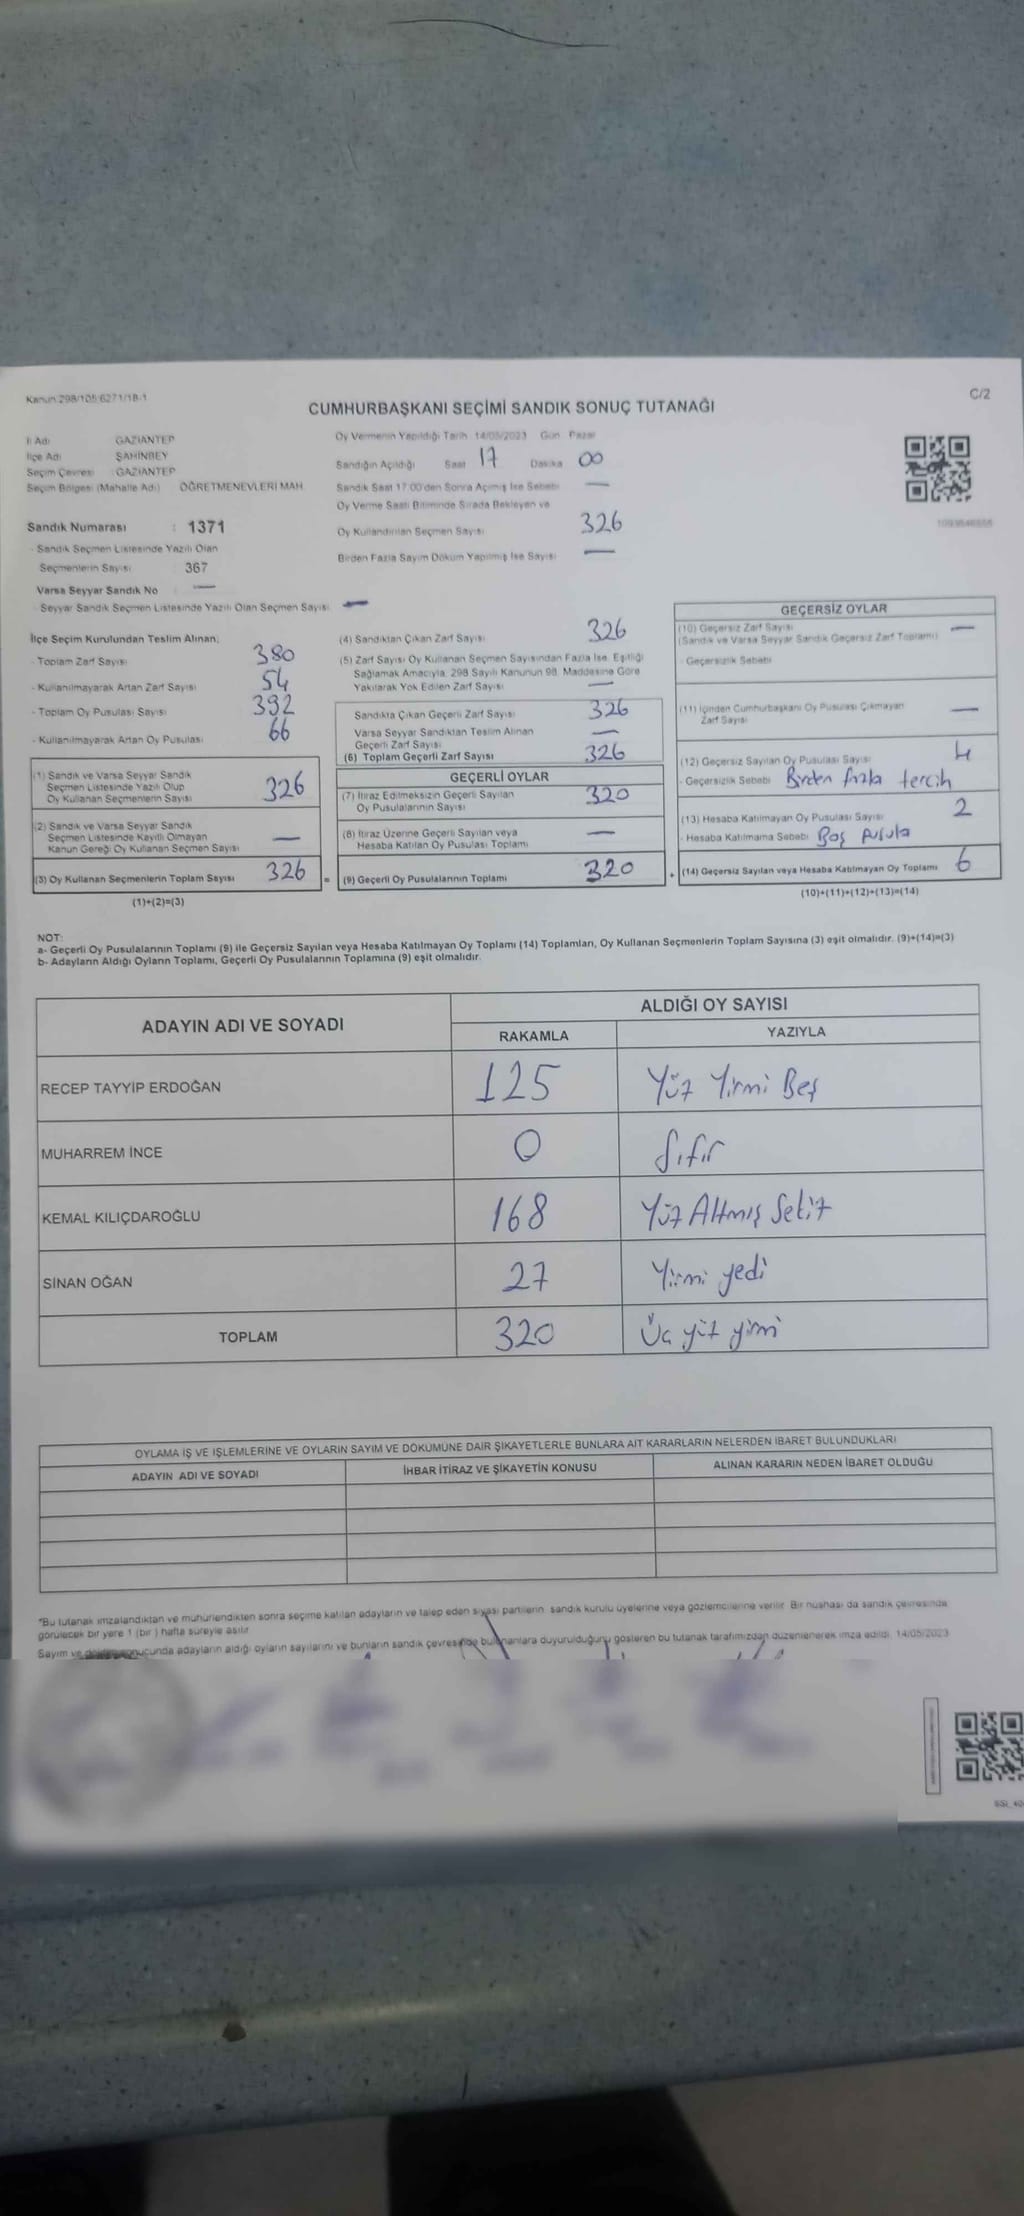 Kanun:298/105:6271/18-1
C/2
CUMHURBAŞKANI SEÇİMİ SANDIK SONUÇ TUTANAĞI
İl Adı GAZİANTEP
İlçe Adı ŞAHİNBEY
Seçim Çevresi GAZİANTEP
Seçim Bölgesi (Mahalle Adı) ÖĞRETMENEVLERİ MAH.
Sandık Numarası : 1371
- Sandık Seçmen Listesinde Yazılı Olan
Seçmenlerin Sayısı 367
Varsa Seyyar Sandık No —
- Seyyar Sandık Seçmen Listesinde Yazılı Olan Seçmen Sayısı —
Oy Vermenin Yapıldığı Tarih 14/05/2023 Gün Pazar
Sandığın Açıldığı Saat 17 Dakika 00
Sandık Saat 17:00'den Sonra Açılmış İse Sebebi —
Oy Verme Saati Bitiminde Sırada Bekleyen ve
Oy Kullandırılan Seçmen Sayısı 326
Birden Fazla Sayım Döküm Yapılmış İse Sayısı —
İlçe Seçim Kurulundan Teslim Alınan;
- Toplam Zarf Sayısı 380
- Kullanılmayarak Artan Zarf Sayısı 54
- Toplam Oy Pusulası Sayısı 392
- Kullanılmayarak Artan Oy Pusulası 66
(1) Sandık ve Varsa Seyyar Sandık
Seçmen Listesinde Yazılı Olup
Oy Kullanan Seçmenlerin Sayısı 326
(2) Sandık ve Varsa Seyyar Sandık
Seçmen Listesinde Kayıtlı Olmayan
Kanun Gereği Oy Kullanan Seçmen Sayısı —
(3) Oy Kullanan Seçmenlerin Toplam Sayısı 326 =
(1)+(2)=(3)
(4) Sandıktan Çıkan Zarf Sayısı 326
(5) Zarf Sayısı Oy Kullanan Seçmen Sayısından Fazla İse, Eşitliği
Sağlamak Amacıyla, 298 Sayılı Kanunun 98. Maddesine Göre
Yakılarak Yok Edilen Zarf Sayısı —
Sandıkta Çıkan Geçerli Zarf Sayısı 326
Varsa Seyyar Sandıktan Teslim Alınan
Geçerli Zarf Sayısı —
(6) Toplam Geçerli Zarf Sayısı 326
GEÇERLİ OYLAR
(7) İtiraz Edilmeksizin Geçerli Sayılan
Oy Pusulalarının Sayısı 320
(8) İtiraz Üzerine Geçerli Sayılan veya
Hesaba Katılan Oy Pusulası Toplamı —
(9) Geçerli Oy Pusulalarının Toplamı 320 +
GEÇERSİZ OYLAR
(10) Geçersiz Zarf Sayısı —
(Sandık ve Varsa Seyyar Sandık Geçersiz Zarf Toplamı)
- Geçersizlik Sebebi
(11) İçinden Cumhurbaşkanı Oy Pusulası Çıkmayan
Zarf Sayısı —
(12) Geçersiz Sayılan Oy Pusulası Sayısı 4
- Geçersizlik Sebebi Birden fazla tercih
(13) Hesaba Katılmayan Oy Pusulası Sayısı 2
- Hesaba Katılmama Sebebi Boş Pusula
(14) Geçersiz Sayılan veya Hesaba Katılmayan Oy Toplamı 6
(10)+(11)+(12)+(13)=(14)
NOT:
a- Geçerli Oy Pusulalarının Toplamı (9) ile Geçersiz Sayılan veya Hesaba Katılmayan Oy Toplamı (14) Toplamları, Oy Kullanan Seçmenlerin Toplam Sayısına (3) eşit olmalıdır. (9)+(14)=(3)
b- Adayların Aldığı Oyların Toplamı, Geçerli Oy Pusulalarının Toplamına (9) eşit olmalıdır.
ADAYIN ADI VE SOYADI
ALDIĞI OY SAYISI
RAKAMLA YAZIYLA
RECEP TAYYİP ERDOĞAN 125 Yüz Yirmi Beş
MUHARREM İNCE 0 Sıfır
KEMAL KILIÇDAROĞLU 168 Yüz Altmış Sekiz
SİNAN OĞAN 27 Yirmi yedi
TOPLAM 320 Üç yüz yirmi
OYLAMA İŞ VE İŞLEMLERİNE VE OYLARIN SAYIM VE DÖKÜMÜNE DAİR ŞİKAYETLERLE BUNLARA AİT KARARLARIN NELERDEN İBARET BULUNDUKLARI
ADAYIN ADI VE SOYADI İHBAR İTİRAZ VE ŞİKAYETİN KONUSU ALINAN KARARIN NEDEN İBARET OLDUĞU
*Bu tutanak imzalandıktan ve mühürlendikten sonra seçime katılan adayların ve talep eden siyasi partilerin sandık kurulu üyelerine veya gözlemcilerine verilir. Bir nüshası da sandık çevresinde
görülecek bir yere 1 (bir) hafta süreyle asılır.
Sayım ve döküm sonucunda adayların aldığı oyların sayılarını ve bunların sandık çevresinde bulunanlara duyurulduğunu gösteren bu tutanak tarafımızdan düzenlenerek imza edildi. 14/05/2023